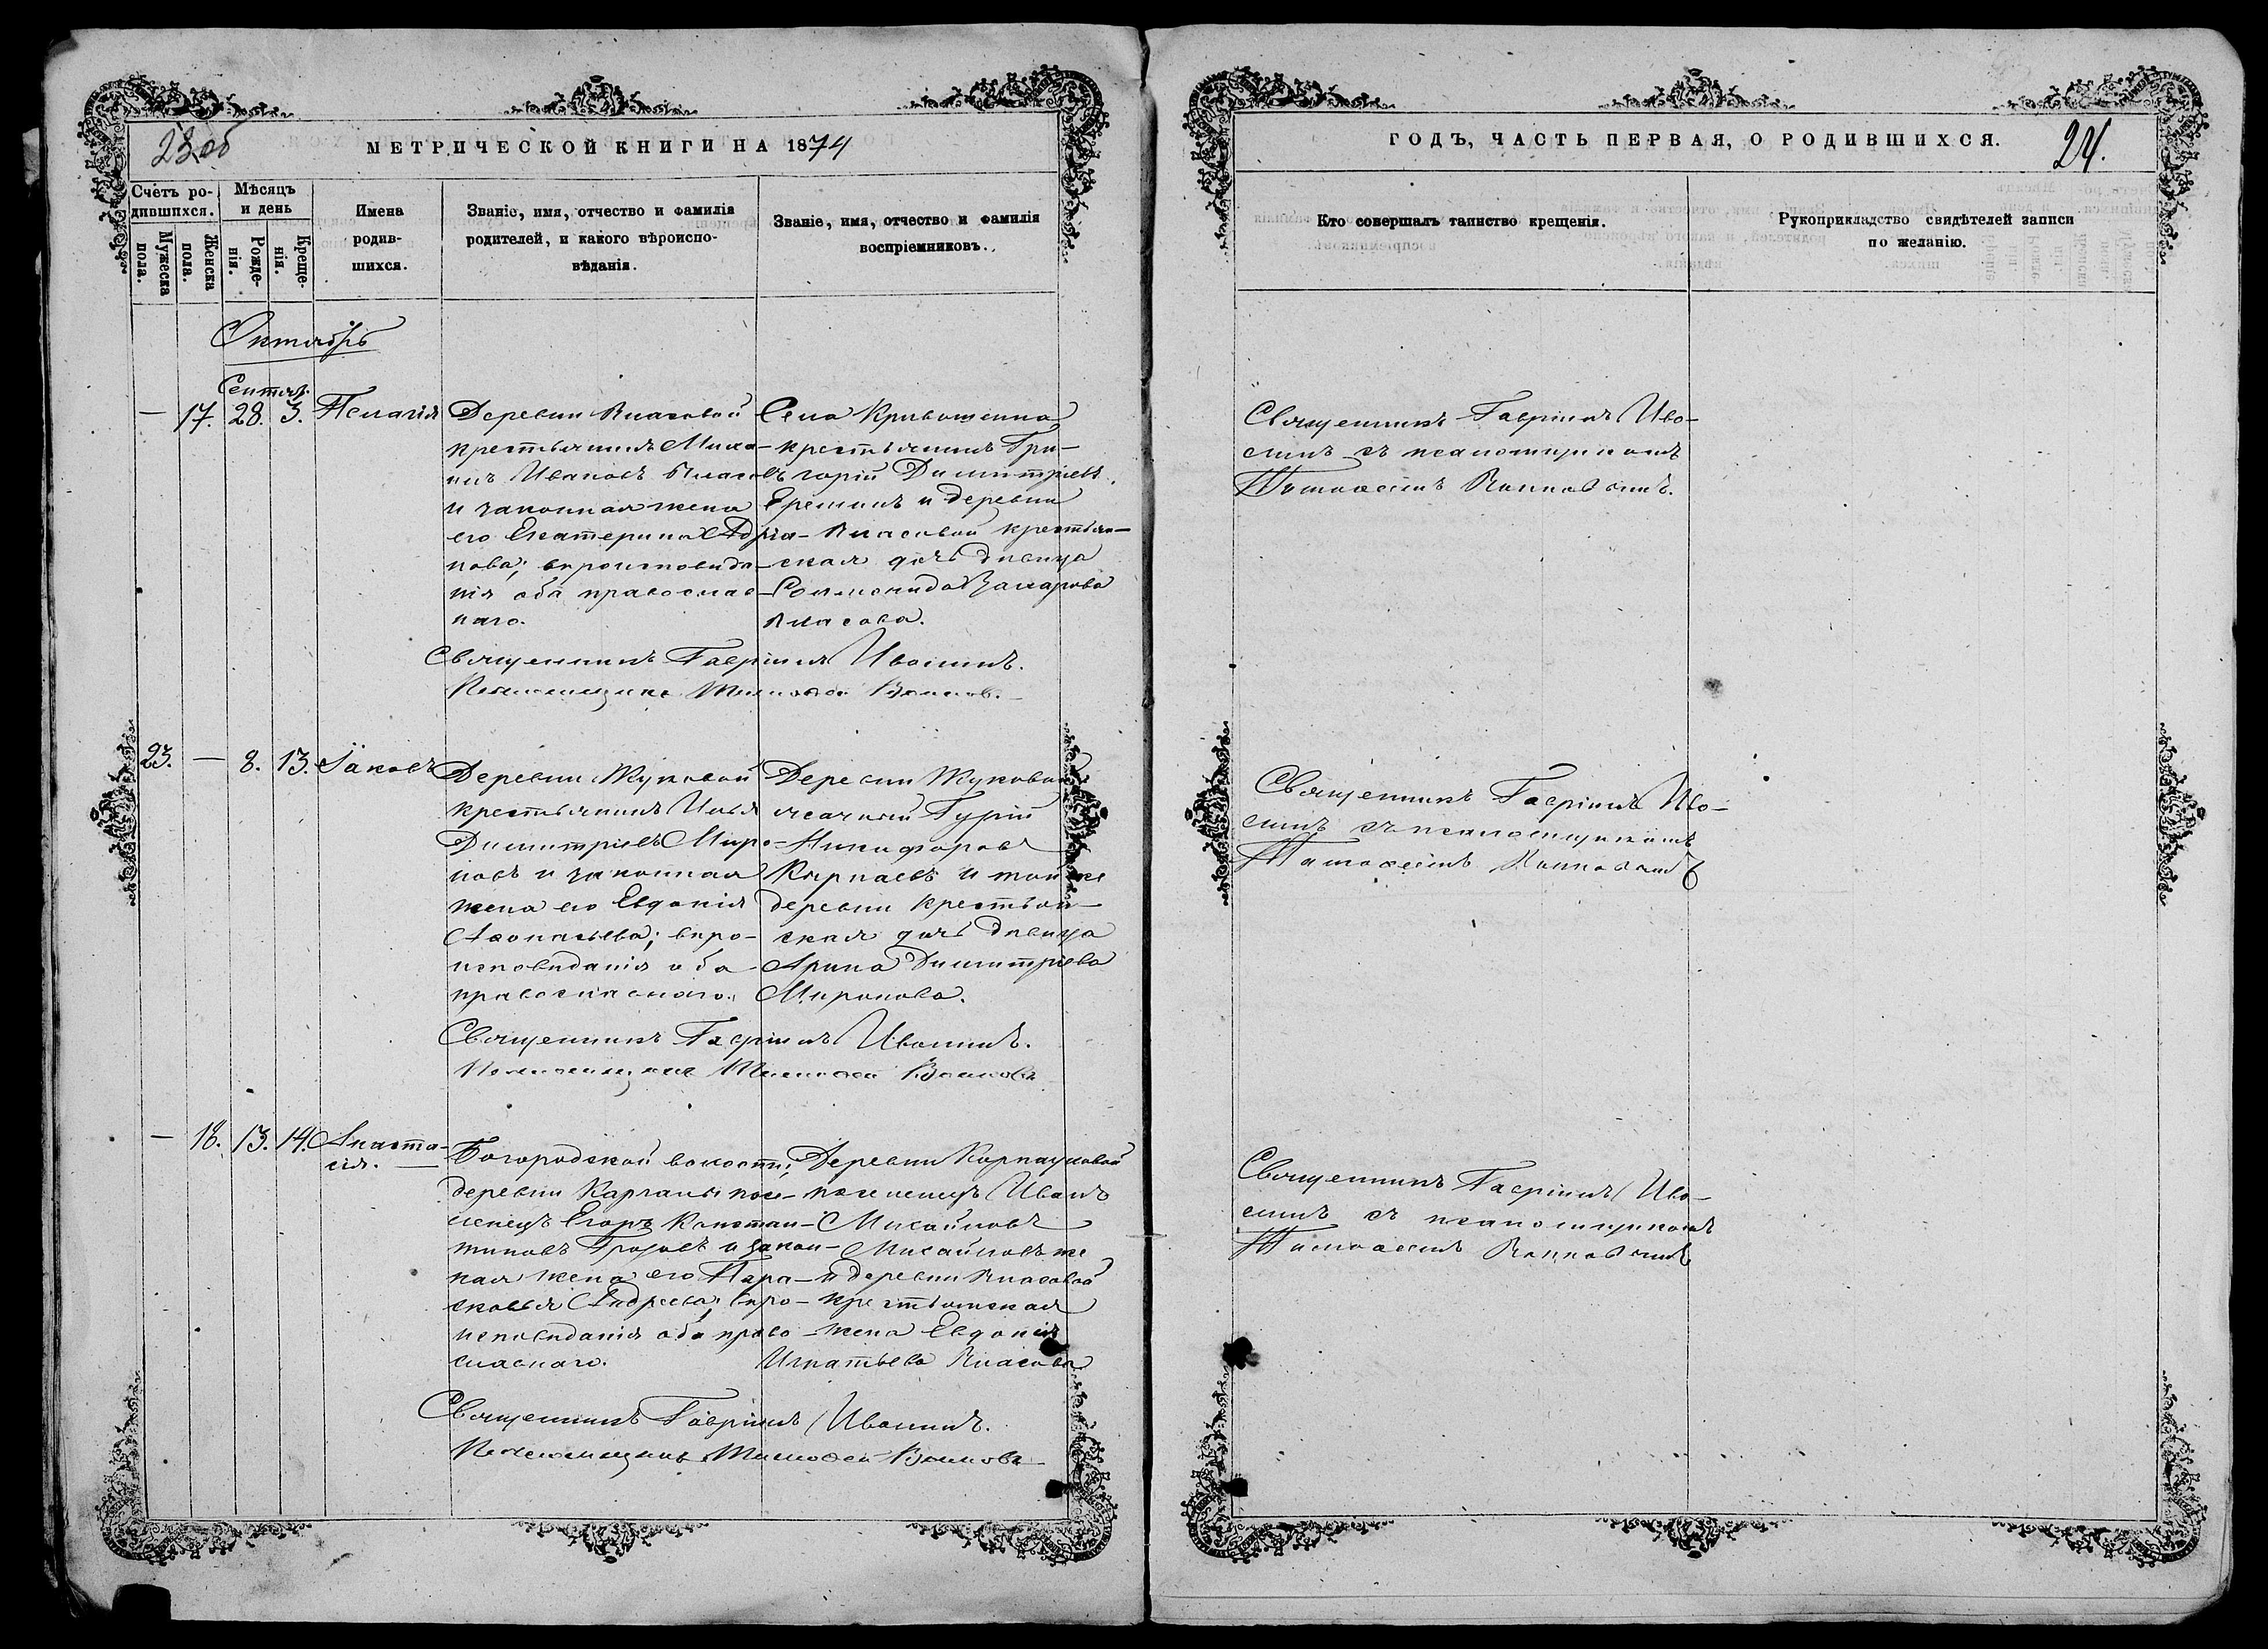 23об
МЕТРИЧЕСКОЙ КНИГИ НА 1874
Счетъ ро-
дившихся.
Мужеска
пола.
Женска
пола.
Мѣсяцъ
и день
Рожде-
нія.
Креще-
нія.
Имена
родив-
шихся.
Званіе, имя, отчество и фамилія
родителей, и какого вѣроиспо-
вѣданія.
Званіе, имя, отчество и фамилія
воспріемниковъ.
Октябрь
Сентяб.
— 17. 28. 3. Пелагія
Деревни Власовой
крестьянинъ Миха-
илъ Ивановъ Власовъ
и законная жена
его Екатерина Адріа-
нова; вѣроисповѣда-
нія оба православ-
наго.
Села Кривошеина
крестьянинъ Гри-
горій Димитріевъ
Ерешинъ и деревни
Власовой крестьян-
ская дочь дѣвица
Соломонида Захарова
Власова.
Священникъ Гавріилъ Ивошинъ.
Псаломщикъ Тимофей Коиновъ.
23. — 8. 13. Іаковъ
Деревни Жуковой
крестьянинъ Илья
Димитріевъ Миро-
новъ и законная
жена его Евдокія
Афонасьева; вѣро-
исповѣданія оба
православнаго.
Деревни Жуковой
ясачный Гурій
Никифоровъ
Карнаевъ и той же
деревни крестьян-
ская дочь дѣвица
Арина Димитріева
Миронова.
Священникъ Гавріилъ Ивошинъ.
Псаломщикъ Тимофей Коиновъ
— 18. 13. 14. Анаста-
сія.
Богородской волости,
деревни Карганы посе-
ленецъ Егоръ Констан-
тиновъ Грозовъ и закон-
ная жена его Пара-
сковья Андреева, вѣро-
исповѣданія оба право-
славнаго.
Деревни Карнауховой
поселенецъ Иванъ
Михайловъ
Михайловъ же
и деревни Власовой
крестьянская
жена Евдокія
Игнатьева Власова
Священникъ Гавріилъ Ивошинъ.
Псаломщикъ Тимофей Коиновъ
ГОДЪ, ЧАСТЬ ПЕРВАЯ, О РОДИВШИХСЯ.
24.
Кто совершалъ таинство крещенія.
Рукоприкладство свидѣтелей записи
по желанію.
Священникъ Гавріилъ Иво-
шинъ съ псаломщикомъ
Тимофеемъ
Священникъ Гавріилъ Иво-
шинъ съ псаломщикомъ
Тимофеемъ
Священникъ Гавріилъ Иво-
шинъ съ псаломщикомъ
Тимофеемъ